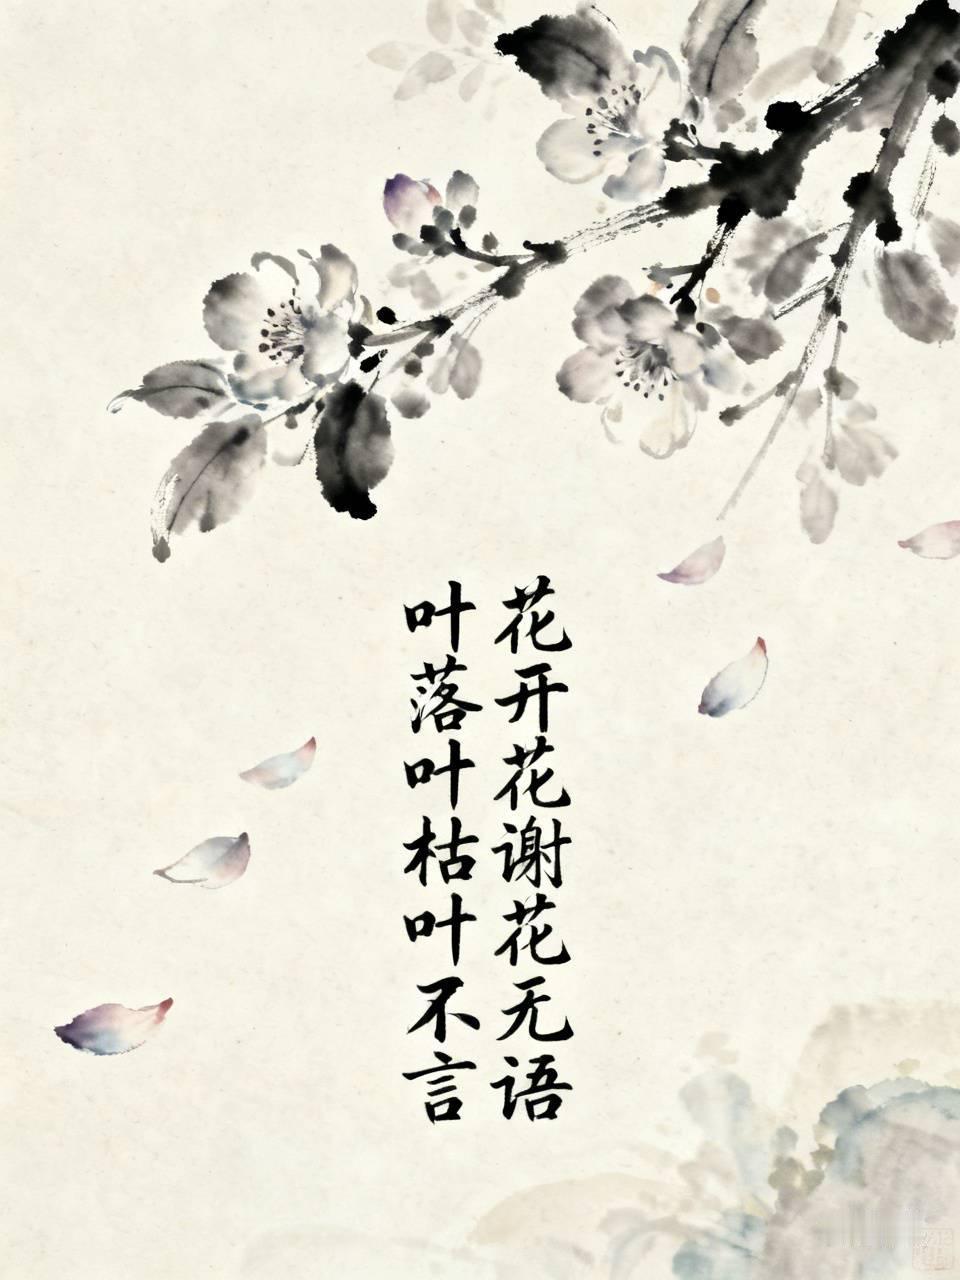 花开花谢花无语
叶落叶枯叶不言